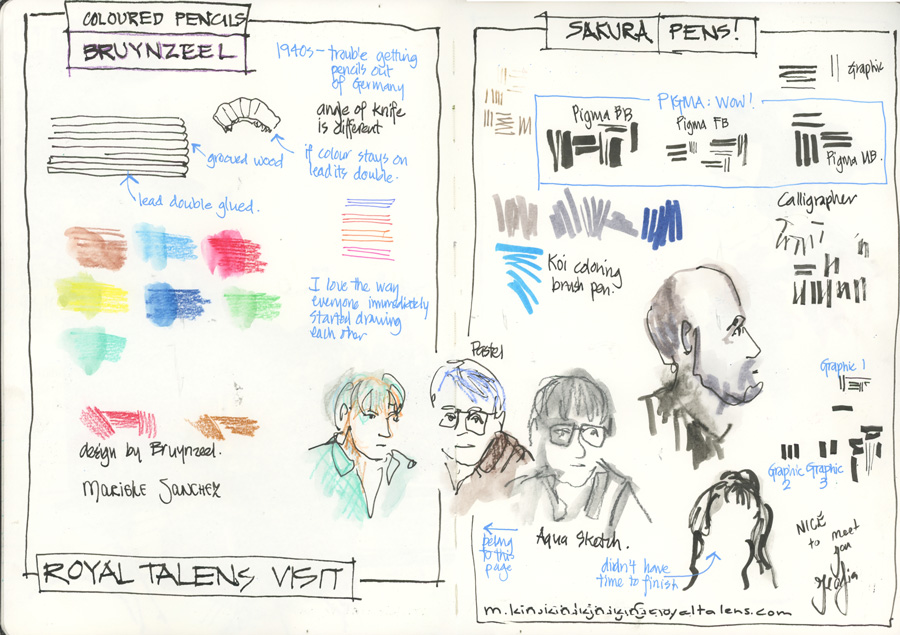 COLOURED PENCILS
BRUYNZEEL
1940s - trouble getting
pencils out
of Germany
angle of knife
is different
grooved wood
if colour stays on
lead its double.
lead double glued.
I love the way
everyone immediately
started drawing
each other
design by Bruynzeel.
ROYAL TALENS VISIT
SAKURA PENS!
Graphic
PIGMA: WOW!
Pigma BB
Pigma FB
Pigma MB.
Calligrapher
Koi coloring
brush pen.
Pastel
Graphic 1
Graphic
2
Graphic
3
Aqua Sketch.
to this
page
didn't have
time to finish
NICE
to meet
you